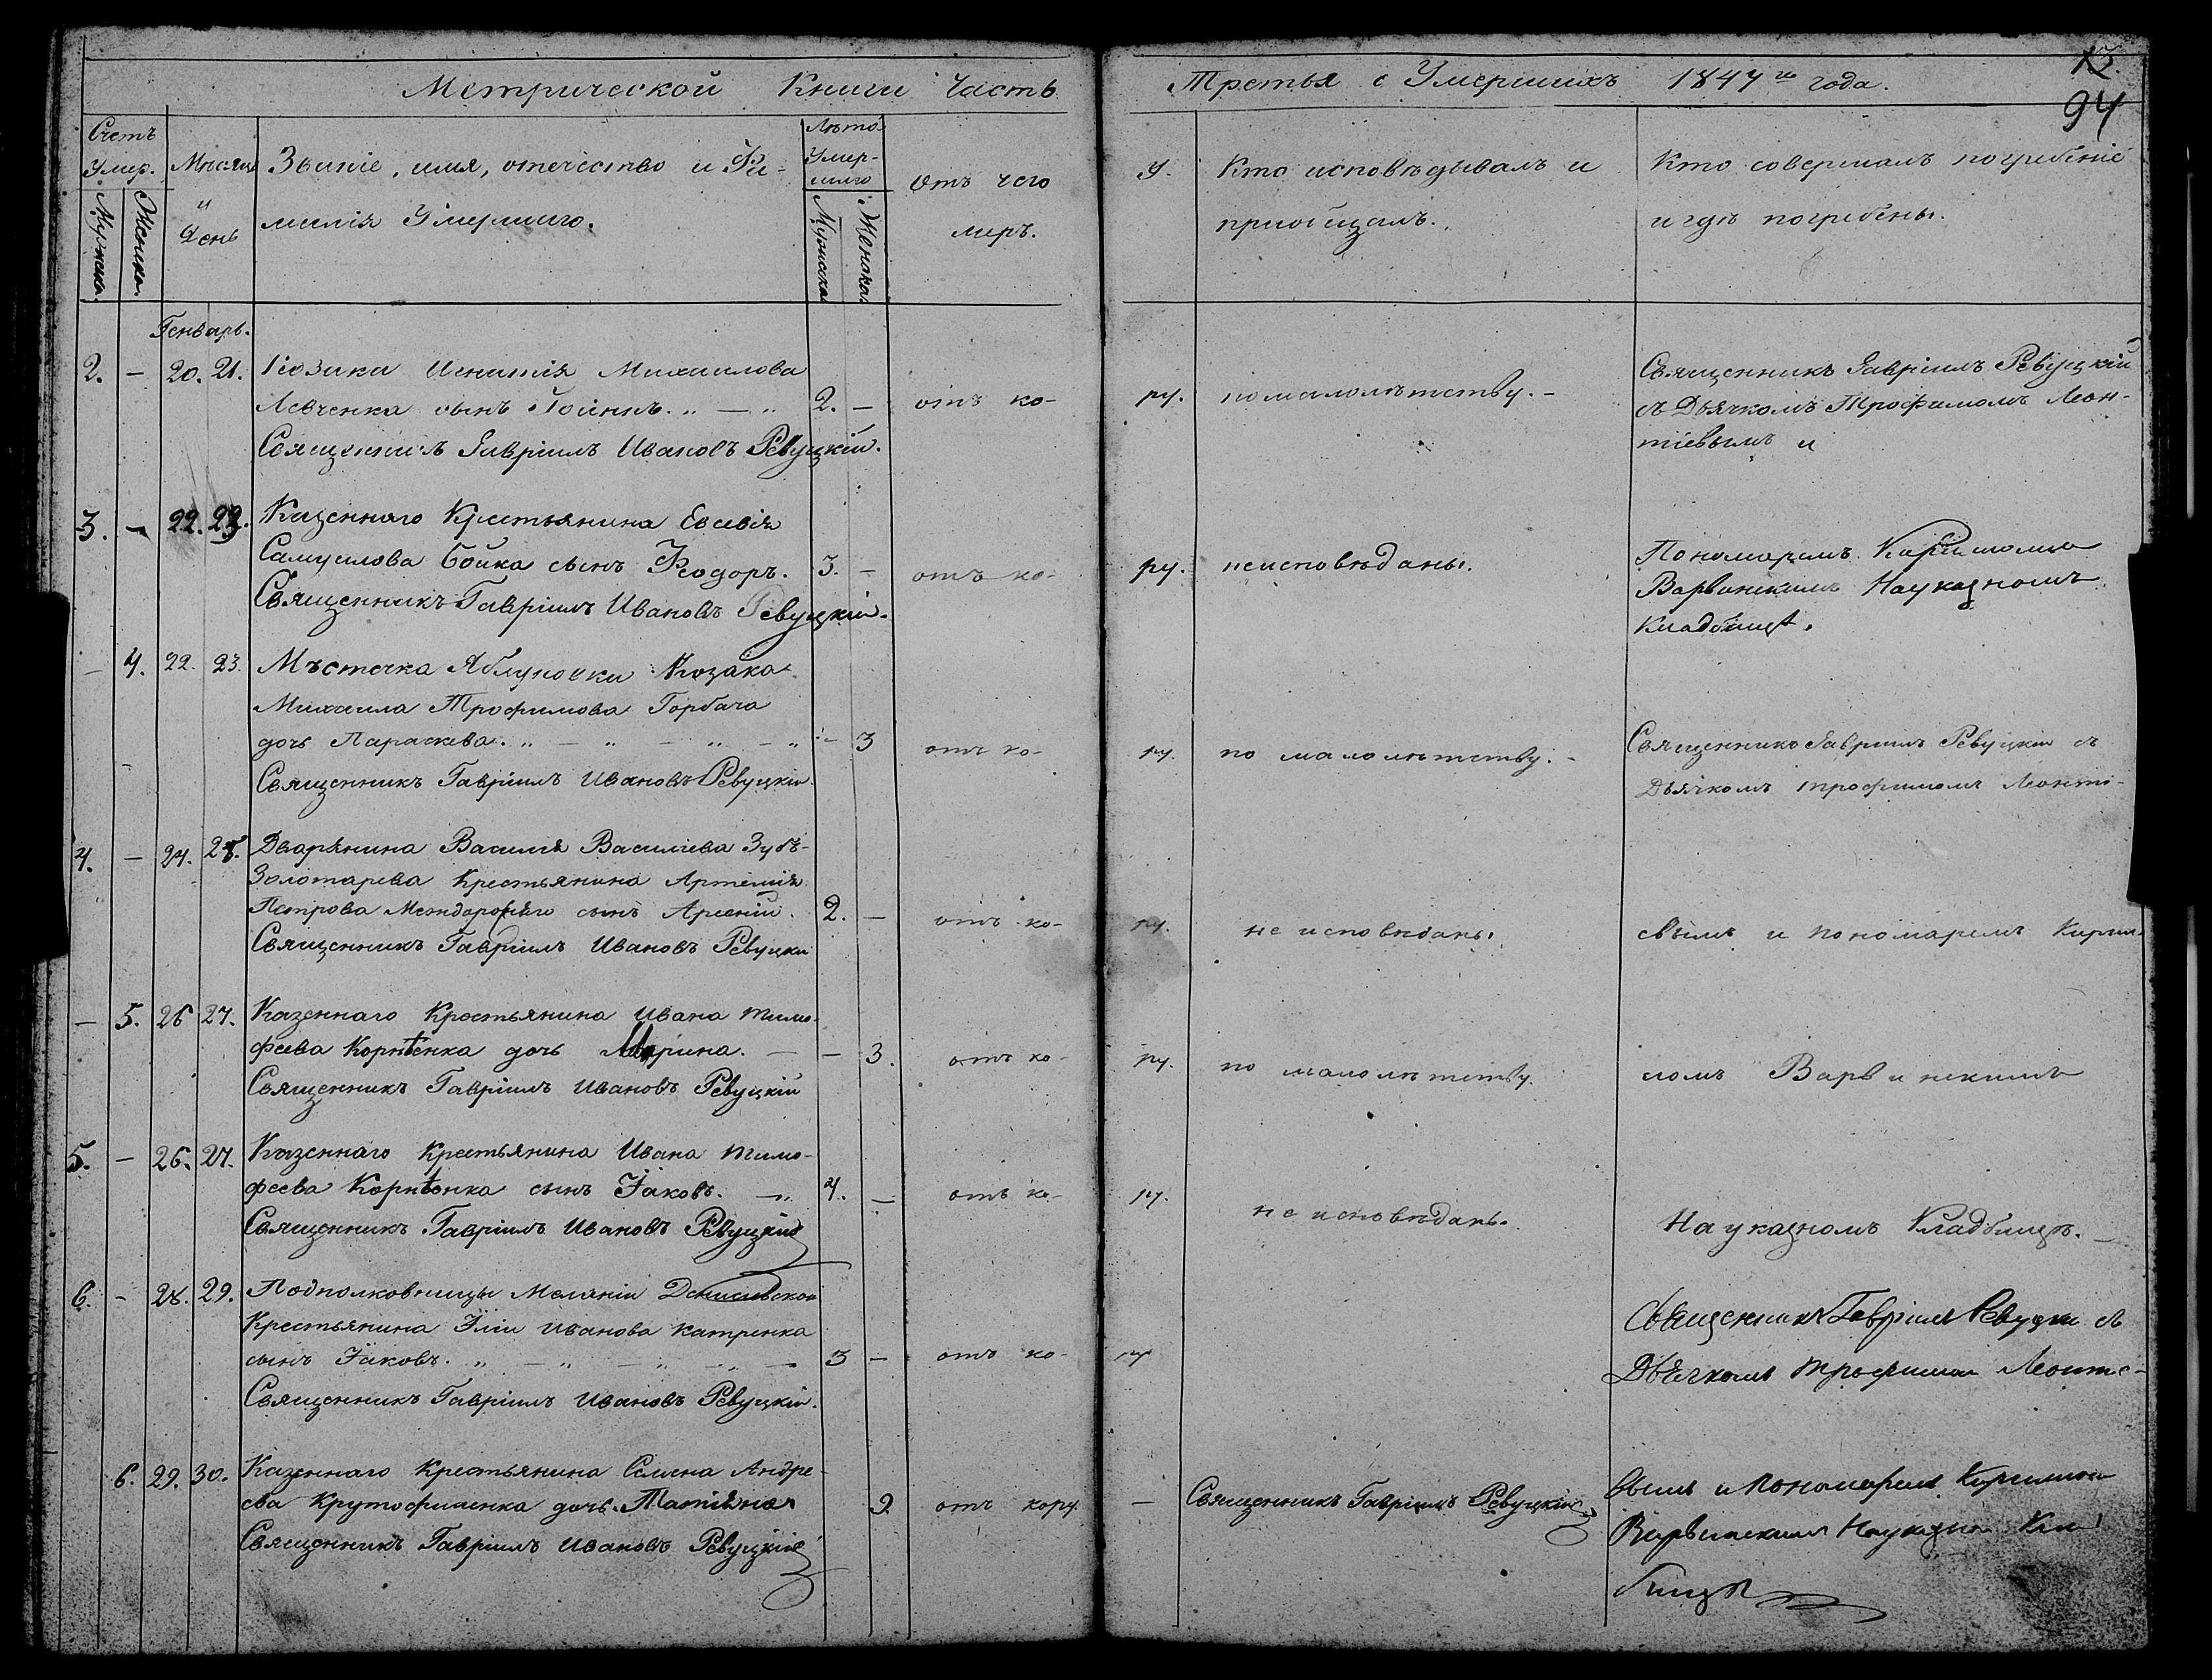 Метрической Книги Часть
Третья о Умершихъ 1847го года.
13.
94
Счетъ Умер.
Мужска.
Женска.
Мѣсяцъ и День
Званіе, имя, отечество и Фа-
милія Умершаго.
Лѣта Умер-
шаго
Мужска
Женска
Отъ чего
меръ.
у.
Кто исповѣдывалъ и
пріобщалъ.
Кто совершалъ погребеніе
и гдѣ погребены.
Генварь.
2. — 20. 21. Козака Игнатія Михаилова
Левченка сынъ 2. — отъ ко- ру. по малолѣтству. -
Священникъ Гавріилъ Ивановъ Ревуцкій.
Священникъ Гавріилъ Ревуцкій
съ Дьячкомъ Трофимомъ Леон-
тіевымъ и
3. — 22. 23. Казеннаго Крестьянина Евсевія
Самуилова Бойка сынъ Ѳеодоръ. 3. — отъ ко- ру. неисповѣданы.
Священникъ Гавріилъ Ивановъ Ревуцкій.
Пономаремъ
Варвинскимъ На указномъ
Кладбищѣ.
— 4. 22. 23. Мѣстечка Яблуновки Козака
Михаила Трофимова Горбача
дочь Параскева. — 3 отъ ко- ру. по малолѣтству. -
Священникъ Гавріилъ Ивановъ Ревуцкій.
Священникъ Гавріилъ Ревуцкій съ
Дьячкомъ Трофимомъ Леонті-
4. — 24. 25. Дворянина Василія Василіева Зубъ-
Золотарева Крестьянина Артемія
Петрова сынъ Арсеній. 2. — отъ ко- ру. не исповѣданы
Священникъ Гавріилъ Ивановъ Ревуцкій
евымъ и пономаремъ Кирил-
— 5. 26 27. Казеннаго Крестьянина Ивана Тимо-
феева Корнѣенка дочь Марина. — — 3. отъ ко- ру. по малолѣтству.
Священникъ Гавріилъ Ивановъ Ревуцкій
ломъ Варвинскимъ
5. — 26. 27. Казеннаго Крестьянина Ивана Тимо-
феева Корнѣенка сынъ Іаковъ. — 4. — отъ ко- ру. не исповѣданы.
Священникъ Гавріилъ Ивановъ Ревуцкій
На указномъ Кладбищѣ.
6. — 28. 29. Подполковницы Меланіи
Крестьянина Иліи Иванова Катренка
сынъ Іаковъ. 3 — отъ ко- ру
Священникъ Гавріилъ Ивановъ Ревуцкій.
Священникъ Гавріилъ Ревуцкій съ
Дьячкомъ Трофимомъ Леонтіе-
6. 29. 30. Казеннаго Крестьянина Семена Андре-
ева дочь Татіяна 9. отъ кору — Священникъ Гавріилъ Ревуцкій
Священникъ Гавріилъ Ивановъ Ревуцкій
вымъ и Пономаремъ Кириломъ
Варвинскимъ На указном Клад
бищѣ